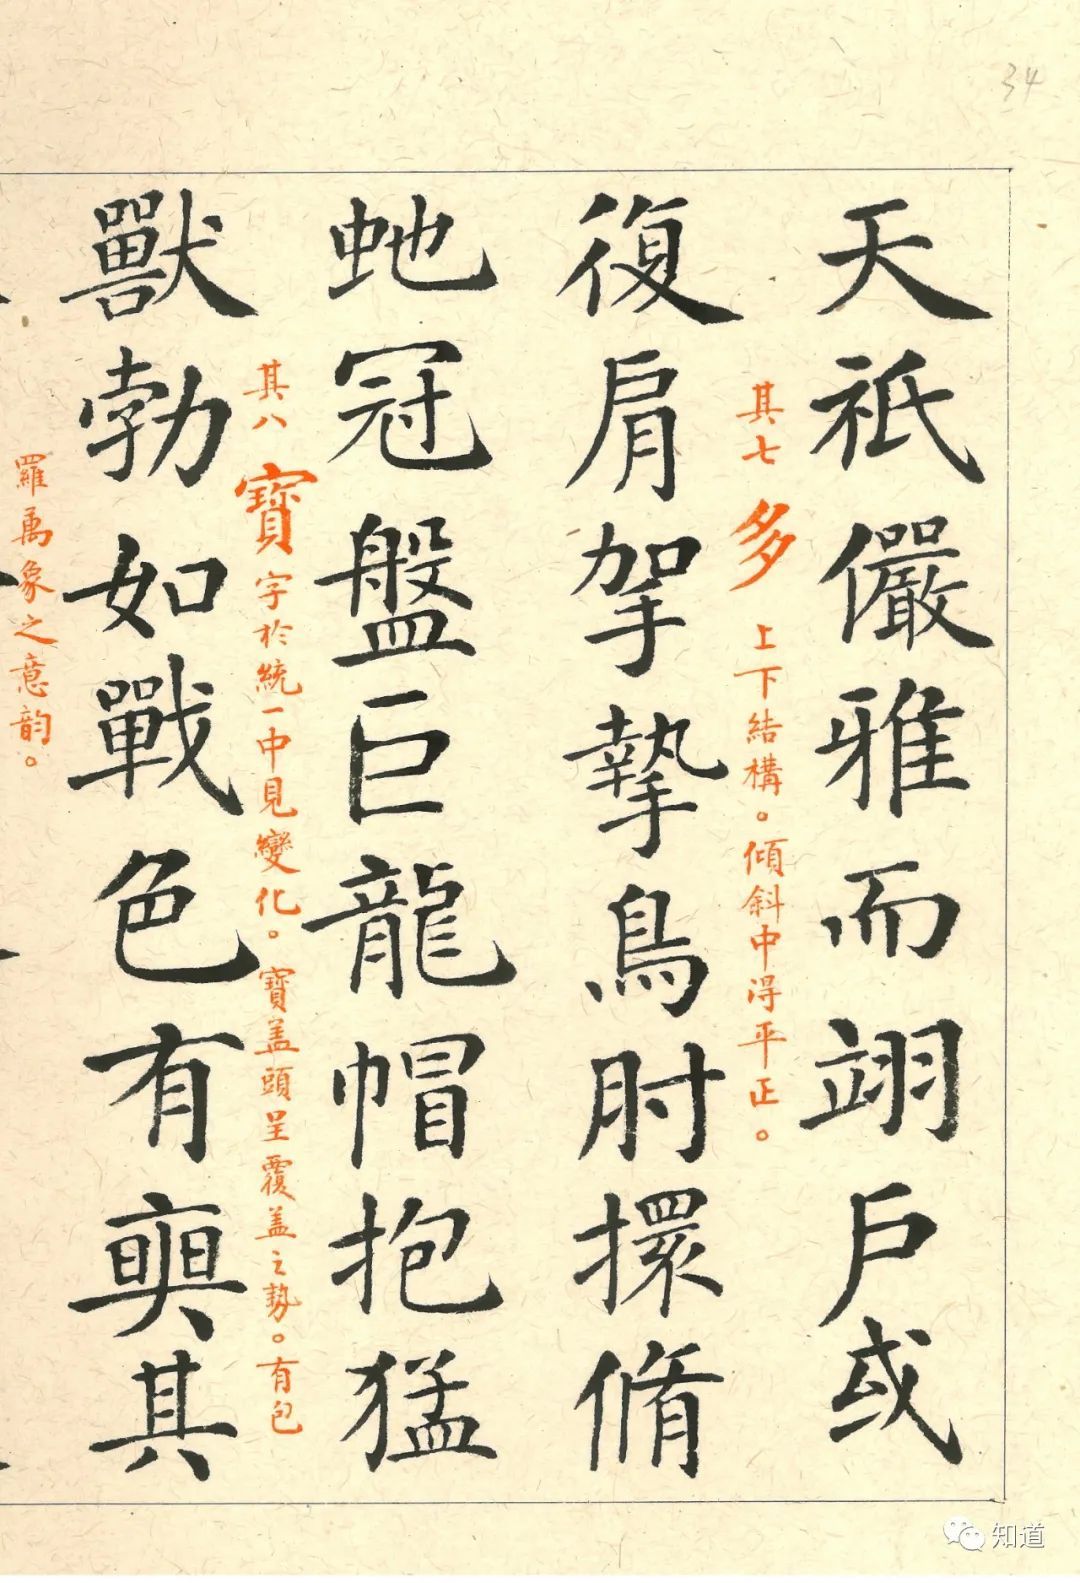 34
天祇儼雅而翊戶或
其七 多 上下結構。傾斜中得平正。
復肩挐摯鳥肘擐脩
虵冠盤巨龍帽抱猛
其八 寶 字於統一中見變化。寶盖頭呈覆盖之勢。有包
獸勃如戰色有奭其
羅萬象之意韵。
知道